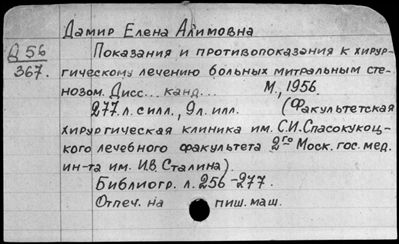 Дамир Елена Алимовна
Д 56
367.
Показания и противопоказания к хирур-
гическому лечению больных митральным сте-
нозом. Дисс... канд... М., 1956.
277 л. с илл., 9 л. илл. (Факультетская
хирургическая клиника им. С.И. Спасокукоц-
кого лечебного факультета 2го Моск. гос. мед.
ин-та им. И.В. Сталина).
Библиогр. л. 256-277.
Отпеч. на пиш. маш.